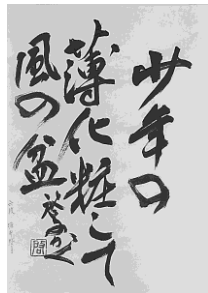 少年の
薄化粧して
風の盆